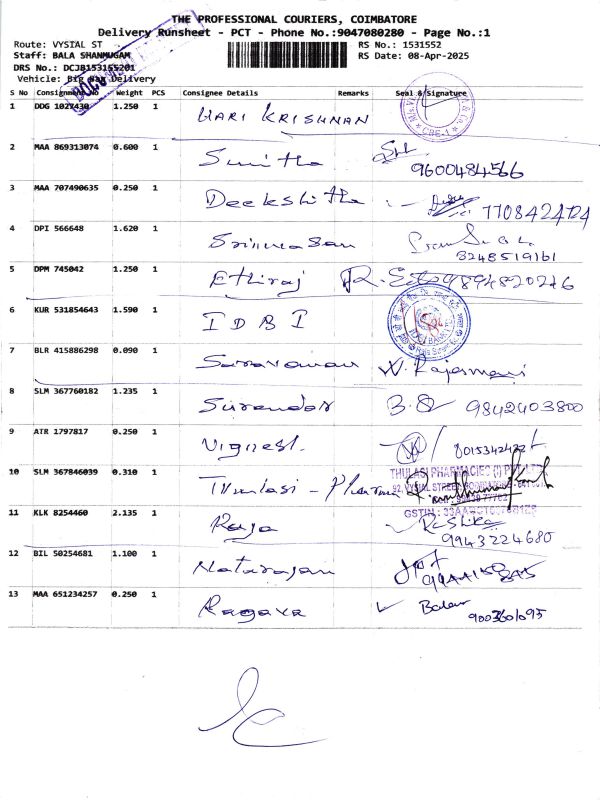 THE PROFESSIONAL COURIERS, COIMBATORE
Delivery Runsheet - PCT - Phone No.:9047080280 - Page No.:1
Route: VYSIAL ST RS No.: 1531552
Staff: BALA SHANMUGAM RS Date: 08-Apr-2025
DRS No.: DCJB153155201
Vehicle: Big Bag Delivery
S No Consignment No Weight PCS Consignee Details Remarks Seal & Signature
1 DDG 1027430 1.250 1 HARI KRISHNAN CBE-1
2 MAA 869313074 0.600 1 Sunitha 9600484566
3 MAA 707490635 0.250 1 Deekshitha 7708424724
4 DPI 566648 1.620 1 Srinivasan 3248519161
5 DPM 745042 1.250 1 Ethiraj 9894820246
6 KUR 531854643 1.590 1 IDBI
7 BLR 415886298 0.090 1 Saravanan N. Rajamani
8 SLM 367760182 1.235 1 Surendar 9842403800
9 ATR 1797817 0.250 1 Vignesh
10 SLM 367846039 0.310 1 Thulasi - Pharma THULASI PHARMACIES (I) PVT LTD
92, VYSIAL STREET
GSTIN :
11 KLK 8254460 2.135 1 Raja Rushika
9943224680
12 BIL 50254681 1.100 1 Natarajan
13 MAA 651234257 0.250 1 Ragava Balan
9003601095